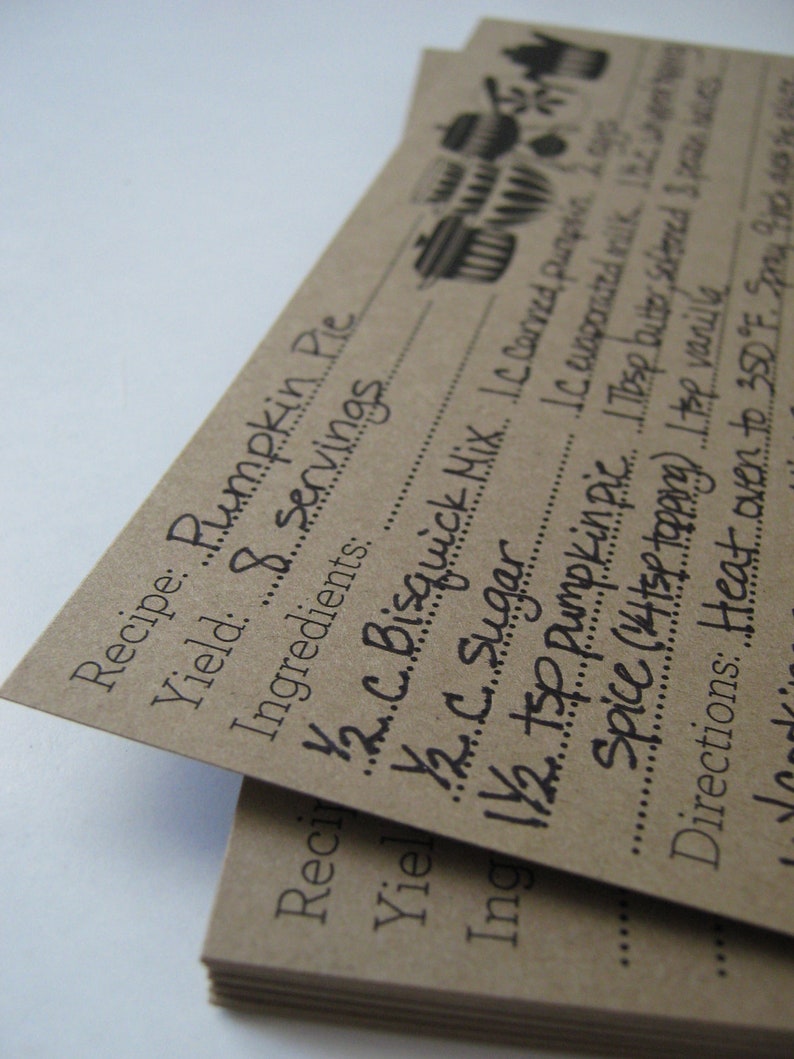 Recipe: Pumpkin Pie
Yield: 8 servings
Ingredients:
1/2 C. Bisquick Mix 1 c canned pumpkin 2 eggs
1/2 C. Sugar 1 c evaporated milk 1 1/2 c whipped topping
1 1/2 tsp pumpkin pie 1 Tbsp butter, softened 8 pecan halves
Spice (1/4 tsp topping) 1 tsp vanilla
Directions: Heat oven to 350°F. Spray 9 inch
Reci
Yiel
Ing